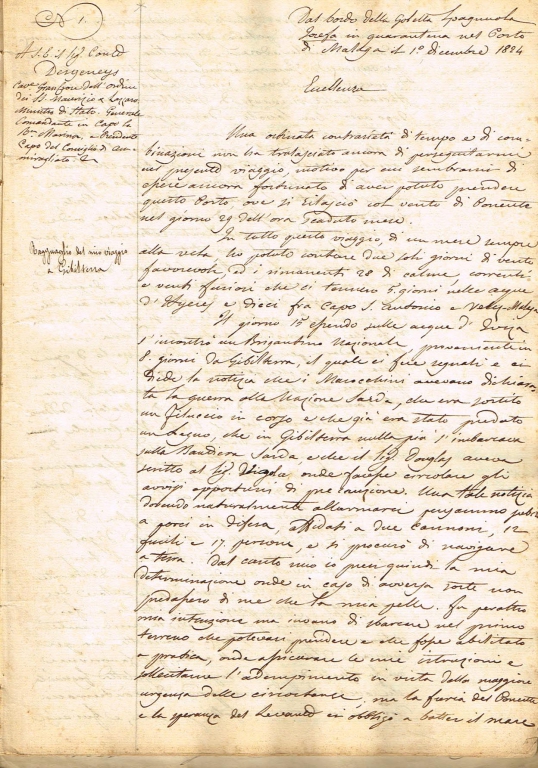 N. 1.
A S. E. il Sig. Conte
Desgeneys
Cav. Gran Croce dell'ordine
dei SS. Maurizio e Lazzaro
Ministro di Stato Generale
Comandante in Capo la
R. Marina, e Presidente
Capo del Consiglio di Am-
miragliato &a
Ragguaglio del mio viaggio
a Gibilterra
Dal bordo della Goletta Spagnuola
in quarantena nel Porto
di Malaga il 1° dicembre 1824
Eccellenza
Una ostinata contrarietà di tempo e di com-
binazioni non ha tralasciato ancora di perseguitarmi
nel presente viaggio, motivo per cui sembrami di
essere ancora fortunato di aver potuto prendere
questo Porto, ove si rilasciò con vento di Ponente
nel giorno 29 dell'ora scaduto mese.
In tutto questo viaggio, di un mese sempre
alla vela ho potuto contare due soli giorni di vento
favorevole, ed i rimanenti 28 di calme, correnti
e venti furiosi che ci tennero 5. giorni nelle acque
d'Hyeres e dieci fra Capo S. Antonio e Velez-Malaga
Il giorno 15 essendo sulle acque d'Iviza
s'incontrò un Brigantino Nazionale, proveniente in
8. giorni da Gibilterra, il quale ci fece segnali e ci
diede la notizia che i Marocchini avevano dichiara-
ta la guerra alla Nazione Sarda, che era sortito
un feluccio in corso e che già era stato predato
un Legno, che in Gibilterra nulla più s'imbarcava
sulla Bandiera Sarda e che il Sig. Douglas aveva
scritto al Sig. onde facesse circolare gli
avvisi opportuni di precauzione. Una tale notizia
dovendo naturalmente allarmarci pensammo subito
a porci in difesa, affidati a due cannoni, 12
fucili e 17 persone, e si procurò di navigare
a terra. Dal canto mio io presi quindi la mia
determinazione onde in caso di avversa sorte non
predassero di me che la mia pelle. Fu per altro
mia intenzione ma invano di sbarcare nel primo
terreno che potevasi prendere e che fosse abilitato
a pratica, onde assicurare le mie istruzioni e
sollecitarne l'adempimento in vista della maggiore
urgenza delle circostanze, ma la furia del Ponente
e la speranza del Levante ci obbligò a batter il mare